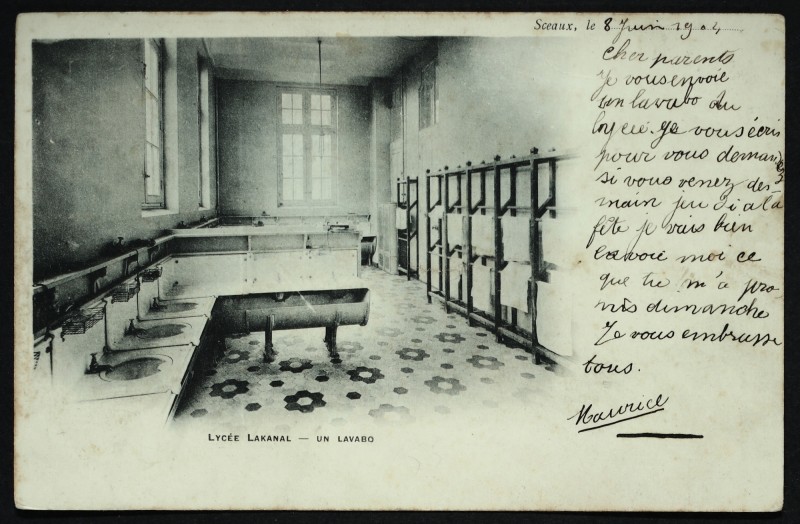 Sceaux, le 8 Juin 1904
Cher parents
Je vous envoie
un lavabo du
lycée. Je vous écris
pour vous demander
si vous venez de-
main jeudi a la
fête je vais bien
envoie moi ce
que tu m'a pro
mis dimanche
Je vous embrasse
tous.
Maurice
LYCÉE LAKANAL — UN LAVABO